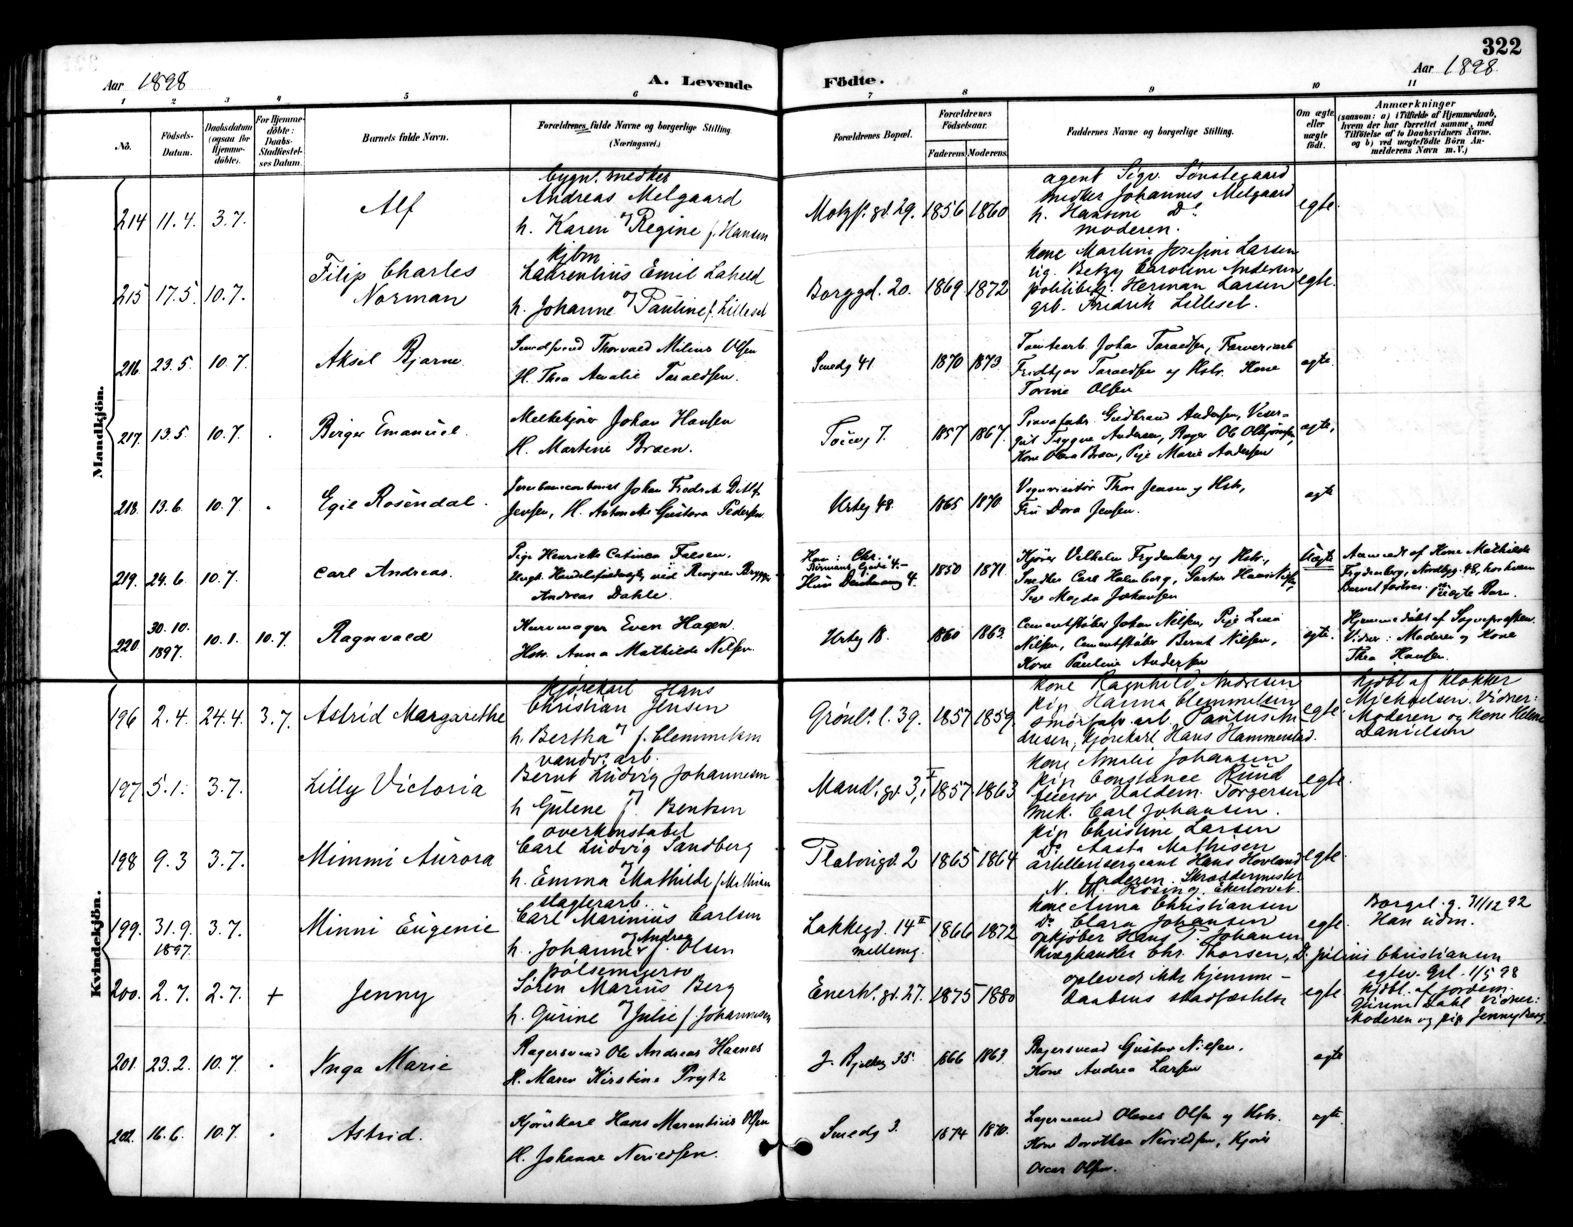 322
Aar 1898
A. Levende
Födte.
Aar 1898
1 2 3 4 5 6 7 8 9 10 11
No.
Födsels-
Datum.
Daabsdatum
(ogsaa for
Hjemme-
döbte).
For Hjemme-
döbte:
Daabs-
Stadfæstel-
ses Datum.
Barnets fulde Navn.
Forældrenes fulde Navne og borgerlige Stilling
(Næringsvei.)
Forældrenes Bopæl.
Forældrenes
Födselsaar.
Faderens. Moderens.
Faddernes Navne og borgerlige Stilling.
Om ægte
eller
uægte
födt.
Anmærkninger
(saasom: a) i Tilfælde af Hjemmedaab,
hvem der har forrettet samme, med
Tilföielse af to Daabsvidners Navne.
og b) ved uægtefödte Börn An-
melderens Navn m.V.)
Mandkjön.
214 11.4. 3.7.
Alf
bygn. mester
Andreas Melgaard
h. Karen Regine f. Hansen
Motzf. gd. 29. 1856 1860
agent Sigv. Sönstegaard
mester Johannes Melgaard
h. Hansine Do
moderen.
egte.
215 17.5. 10.7.
Filip Charles
Norman
kjbm
Laurentius Emil
h. Johanne Pauline f. Lilleset
Borggd. 20. 1869 1872
kone Martine Josefine Larsen
pig. Betzy Caroline Andersen
politibetj. Herman Larsen
grb. Fredrik Lilleset.
egte.
216 23.5 10.7.
Aksel Bjarne
Smedsvend Thorvald Milius Olsen
H. Thea Amalie Taraldsen.
Smedg 41 1870 1873
Tomtearb. Johan Taraldsen, Farveriarb
Fridtjov Taraldsen og Hstr. Kone
Torine Olsen
ægte.
217. 13.5 10.7.
Birger Emanuel.
Melkekjører Johan Hansen
H. Martine Braen.
7. 1857 1867
Gudbrand Andersen, Viser-
gut Trygve Andersen,
Kone Olava Braen, Pige Marie Andersen
ægte,
218. 13.6. 10.7.
Egil Rosendal.
Johan Fredrik
Jensen, H. Antonette Gustava Pedersen
Urteg 48. 1865 1870
Vognvisitør Thor Jensen og Hstr,
Fru Dora Jensen.
ægte
219. 24.6. 10.7.
Carl Andreas.
Pige Henriette Catinca Falsen.
Ungk. Handelsfuldmægtig ved Ringnes Bryggeri
Andreas Dahle.
Han: Chr.
Gade 4.
Hun 4. 1850 1871
Kjører Vilhelm Frydenberg og Hstr,
Snedker Carl Holmberg,
Pige Magda Johansen
Uægte
Anmeldt af Kone Mathilde
Frydenberg, Nordbyg. 48, hos hvem
Barnet fostres. Uægte Barn.
220 30.10.
1897. 10.1. 10.7
Ragnvald
Kurvmager Even Hagen.
Hstr. Anna Mathilde Nilsen.
Urteg 18. 1860 1863.
Cementstøber Johan Nilsen, Pige
Nilsen, Cementstøber Bernt Nilsen,
Kone Pauline Andersen
ægte.
Hjemmedøbt af Sognepresten.
Vidner: Moderen og Kone
Thea Hansen.
Kvindekjön.
196 2.4. 24.4. 3.7.
Astrid Margarethe
kjørekarl Hans
Christian Jensen
h. Bertha f. Clemmetsen
Grönl. l. 39. 1857 1859.
kone Ragnhild Andresen
pig. Hanna Clemmetsen
smörfab. arb. Paulus An
dresen, kjörekarl Hans Hammerstad.
egte
hjdbt af klokker
Michaelsen. Vidner:
Moderen og kone Helene
Danielsen
197 5.1. 3.7.
Lilly Victoria
vandv. arb.
Bernt Ludvig Johannesen
h. Gutene f. Bentsen
Mandl. gd. 3, I 1857 1863
kone Amalie Johansen
pig. Constance Rund
Valdem. Torgersen
mek. Carl Johansen.
egte.
198 9.3 3.7.
Mimmi Aurora
overkonstabel
Carl Ludvig Sandberg
h. Emma Mathilde f. Mathisen
2 1865 1864
pig. Christine Larsen
Do Aasta Mathisen
artillerisergeant Hans Hovland
faderen. Skræddermester
egte.
199. 31.9.
1897 3.7.
Minni Eugenie
slagterarb.
Carl Marinius Carlsen
h. Johanne Andrea f. Olsen
Lakkegd. 14 II
mellemg. 1866 1872
kone Anna Christiansen
Do Clara Johansen
opkjöber Hans P. Johansen
kvæghandler Chr. Thorsen, D. Julius Christiansen
egte.
Borgel. g. 31/12 92
Han udm.
200. 2.7. 2.7. +
Jenny
pölsemagersv
Sören Marius Berg
h. Gurine Julie f. Johannesen
Enerh. gd. 27. 1875 1880
oplevede ikke hjemme-
daabens stadfæstelse
egte
egtev. Grl. 1/5 98
hjdbt. af jordem.
Gurine Dahl Vidner:
Moderen og pig. Jenny Berg
201. 23.2. 10.7.
Inga Marie
Bagersvend Ole Andreas Haanes
H. Maren Kirstine Prytz
35. 1866 1863.
Bagersvend Gustav Nilsen.
Kone Andrea Larsen
ægte
202. 16.6. 10.7.
Astrid.
Kjörekarl Hans Marentius Olsen
H. Johanne
Smedg 3. 1874 1870.
Lagermand Olaves Olsen og Hstr.
Kone Dorothea Kjører
Oscar Olsen.
ægte